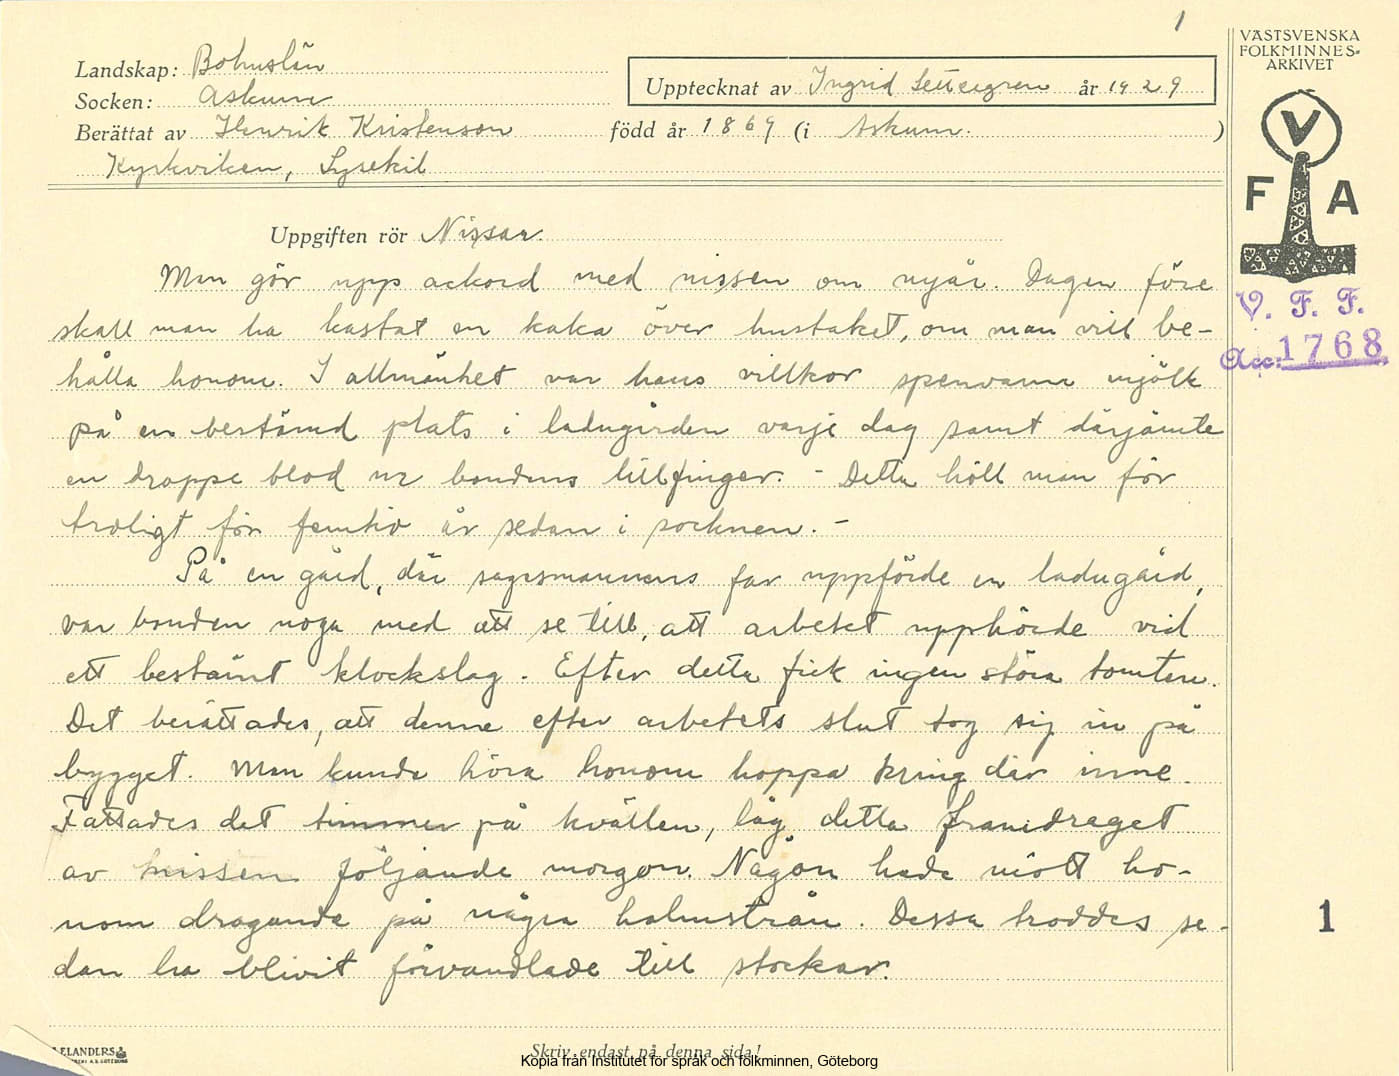 1
VÄSTSVENSKA
FOLKMINNES-
ARKIVET
Landskap: Bohuslän
Upptecknat av Ingrid Settergren år 1929
Socken: Askum
Berättat av Henrik Kristenson född år 1869 (i Askum. )
Kyrkviken, Lysekil
V
F A
Uppgiften rör Nissar.
V. F. F.
Acc: 1768
Man gör upp ackord med nissen om nyår. Dagen före
skall man ha kastat en kaka över hustaket, om man vill be-
hålla honom. I allmänhet var hans villkor spenvarm mjölk
på en bestämd plats i ladugården varje dag samt därjämte
en droppe blod ur bondens lillfinger. - Detta höll man för
troligt för femtio år sedan i socknen. -
På en gård, där sagesmannens far uppförde en ladugård,
var bonden noga med att se till, att arbetet upphörde vid
ett bestämt klockslag. Efter detta fick ingen störa tomten.
Det berättades, att denne efter arbetets slut tog sig in på
bygget. Man kunde höra honom hoppa kring där inne.
Fattades det timmer på kvällen, låg detta framdraget
av nissen följande morgon. Någon hade mött ho-
nom dragande på några halmstrån. Dessa troddes se-
dan ha blivit förvandlade till stockar.
1
ELANDERS
Skriv endast på denna sida!
Kopia från Institutet för språk och folkminnen, Göteborg